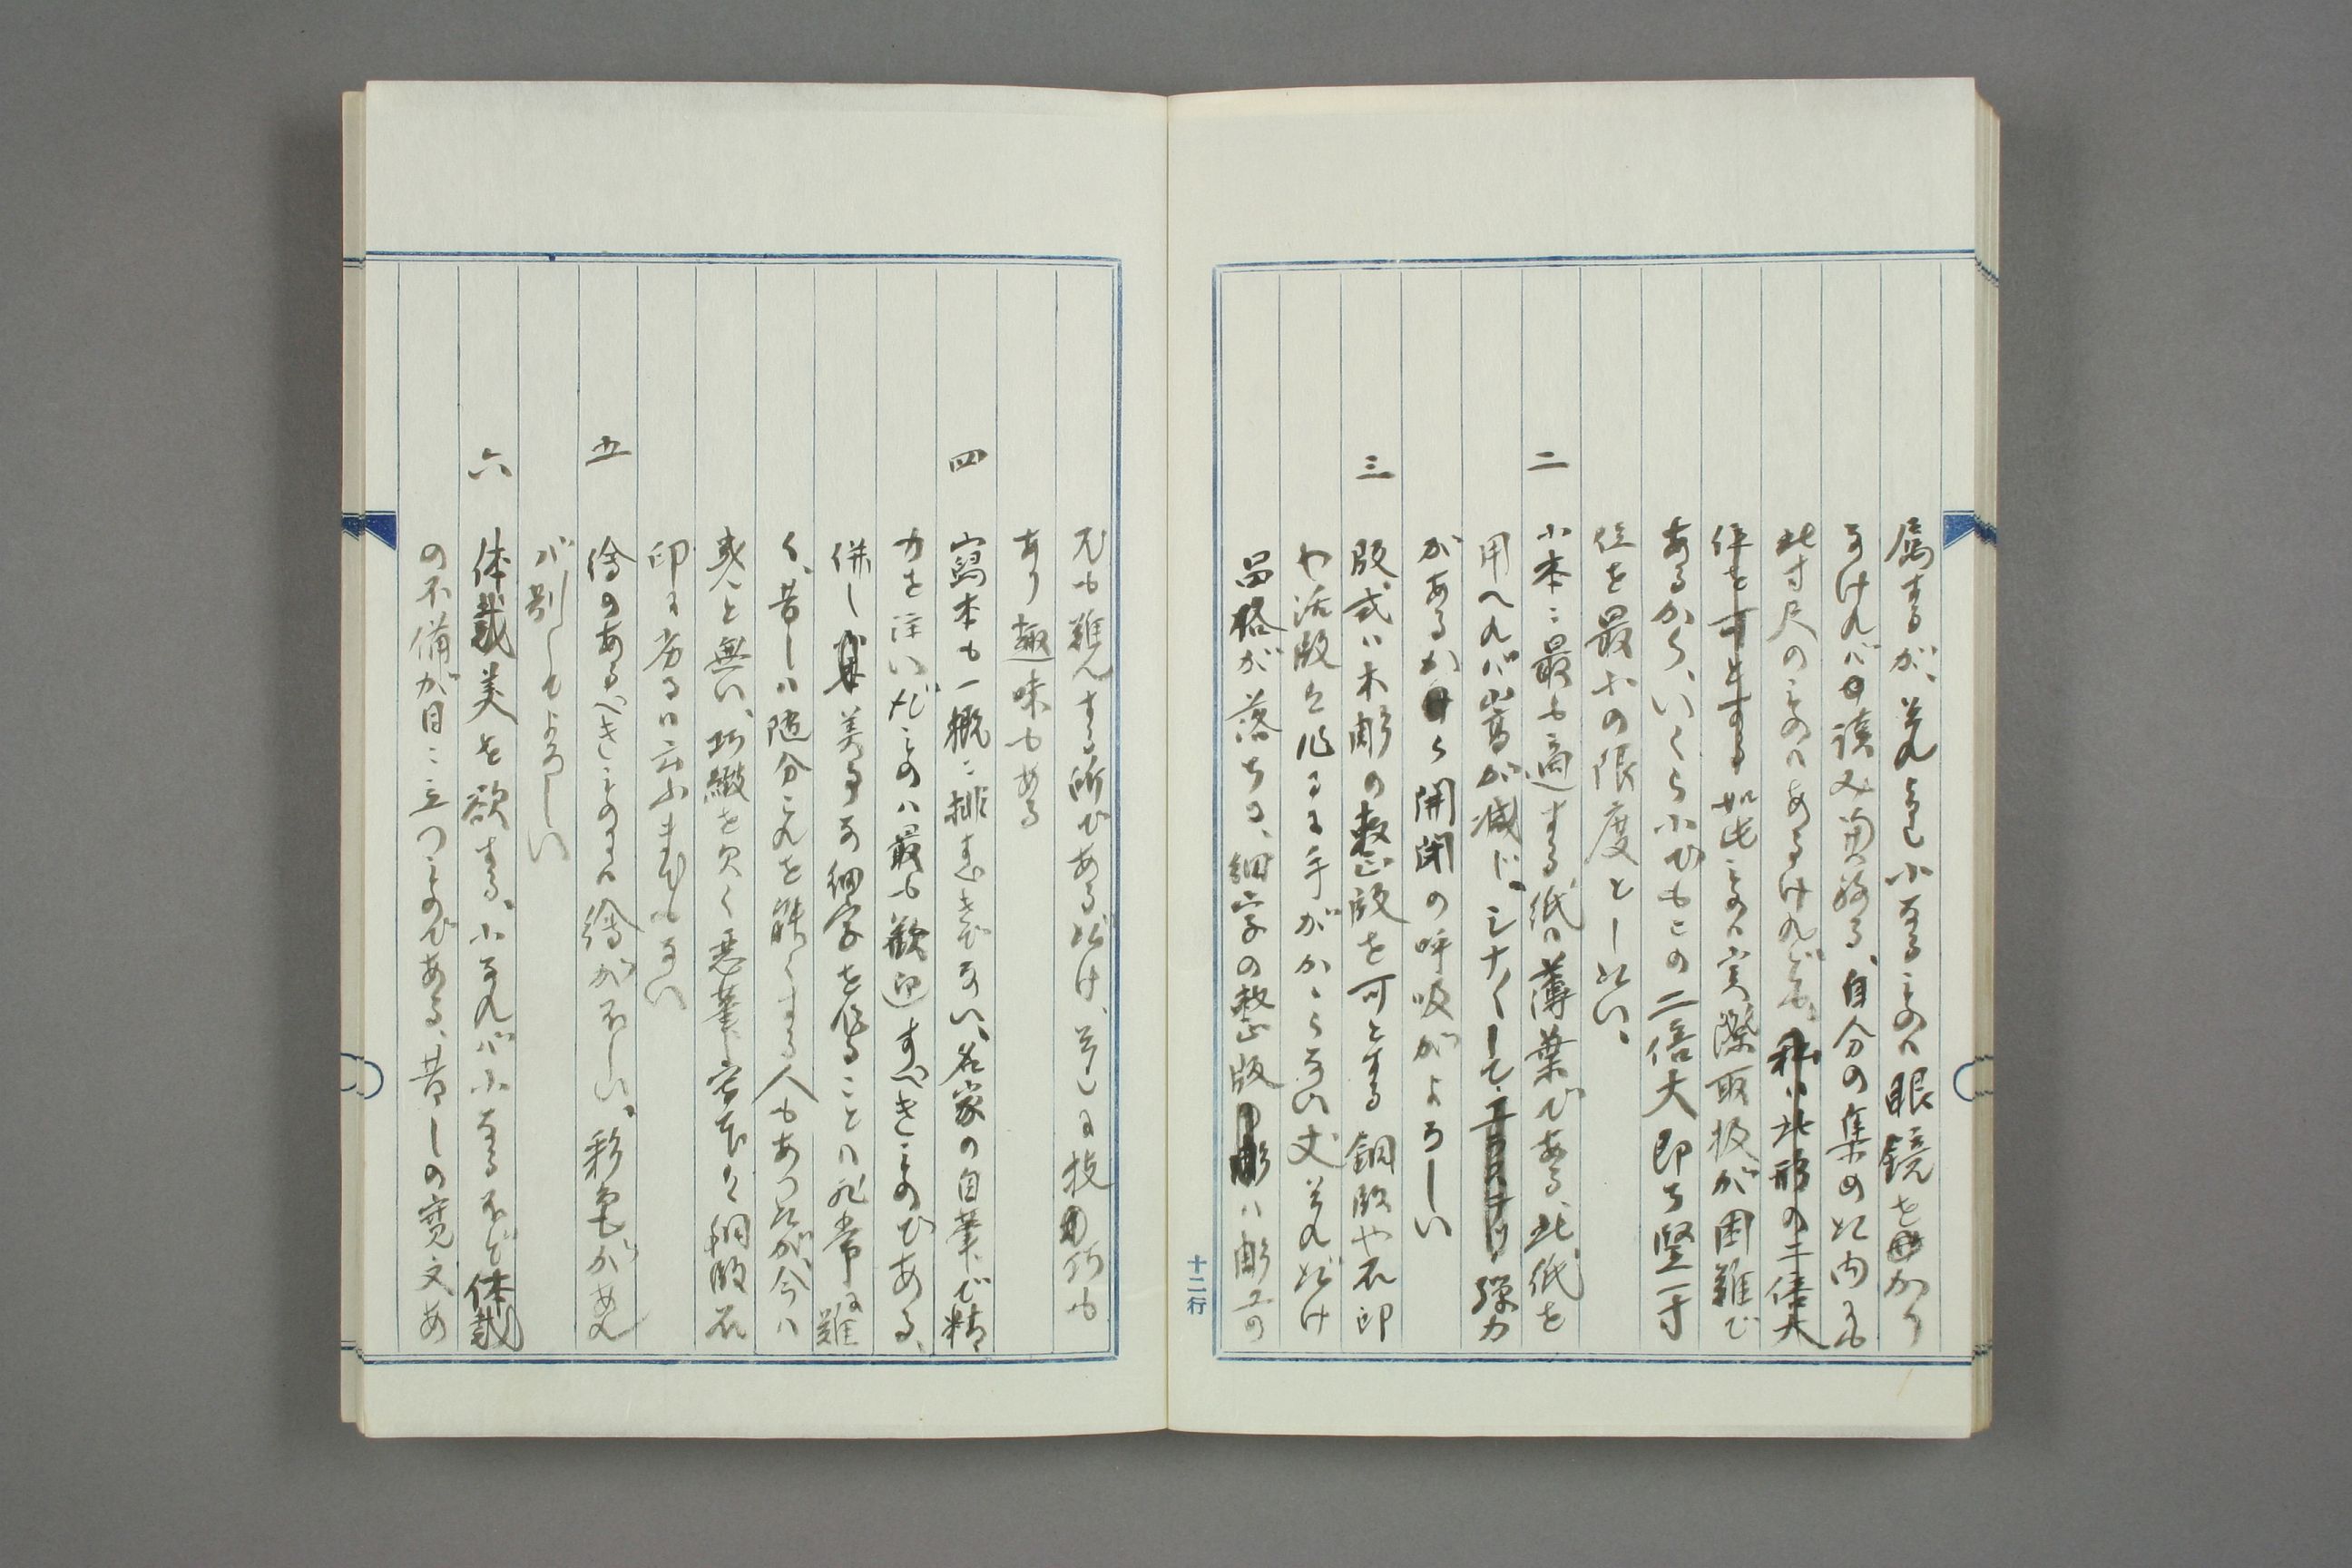 属するが、夫れより小なるものハ眼鏡をかり
なけれバ読み兼ねる、自分の集めた内にも
此寸尺のものハあるけれども、
如此ものハ実際取扱が困難で
あるから、いくら小でもこの二倍大即ち竪一寸
位を最小の限度としたい、
二 小本ニ最も適する紙ハ薄葉である、此紙を
用へれバ嵩が減じ、シナ〱して弾力
があるから開閉の呼吸がよろしい
三 版式ハ木彫の整版を可とする 銅版や石印
や活版を作るに手がかゝらない丈それだけ
品格が落ちる、細字の整版ハ彫工の
尤も難んずる所であるだけ、そこに技巧も
あり趣味もある
四 写本も一概ニ排すべきでない、名家の自筆で精
力を注いだものハ最も歓迎すべきものである、
併し美事な細字を作ることハ非常に難
く、昔しハ随分これを能くする人もあつたが、今ハ
殆んと無い、巧緻を欠く悪筆の写本ハ銅版石
印に劣るハ云ふまでもない
五 絵のあるべきものにハ絵が欲しい、彩色があれ
が別してよろしい
六 体裁美を欲する、小なれバ小なるほど体裁
の不備が目ニ立つものである、昔しの寛文あ
十二行